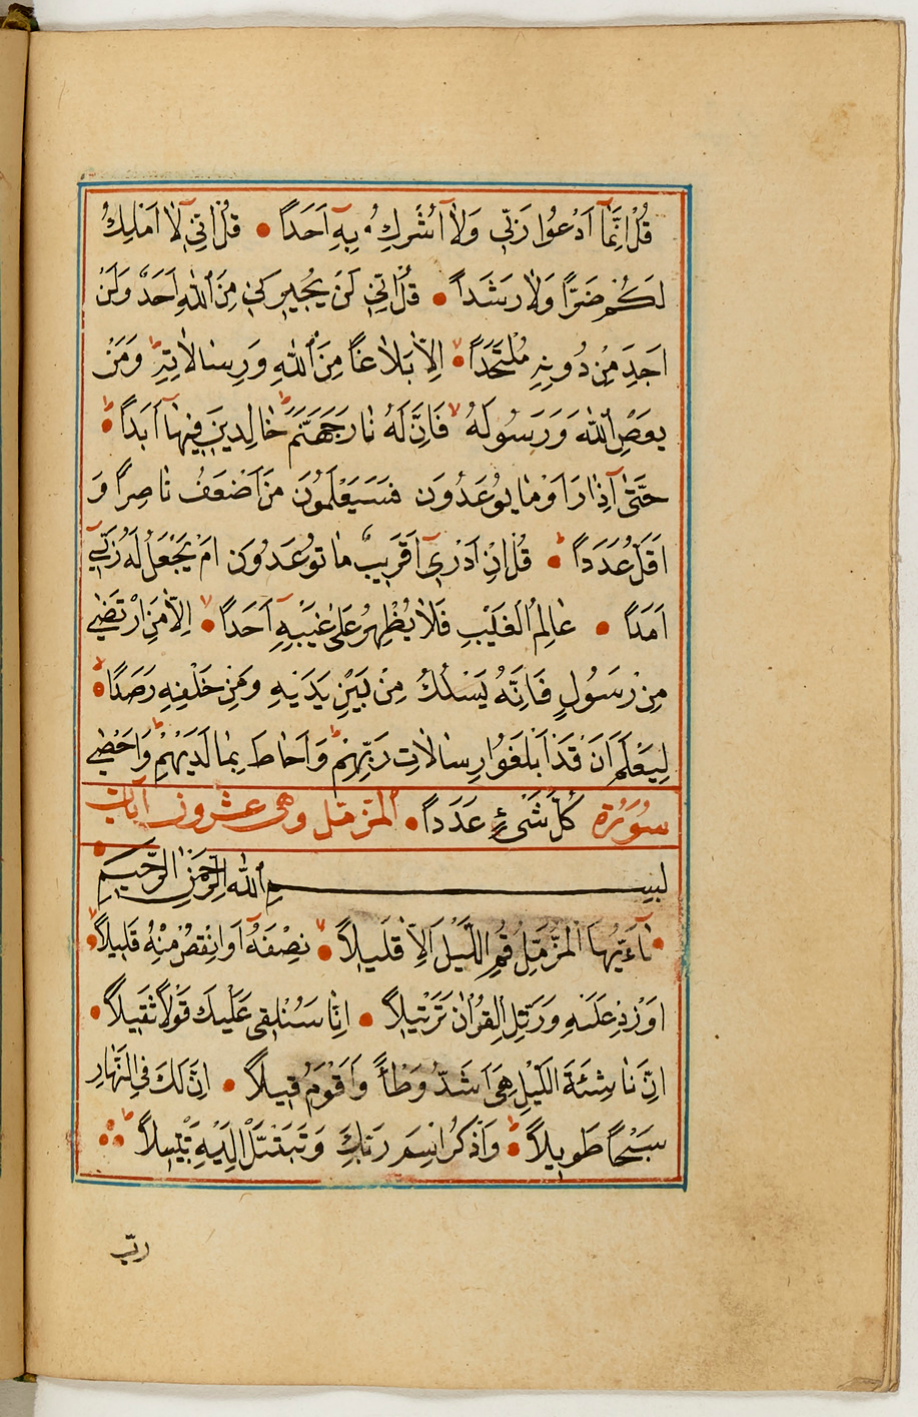 قُلْ اِنَّمَآ اَدْعُوا رَبّٖى وَلَآ اُشْرِكُ بِهٖٓ اَحَدًا • قُلْ اِنّٖى لَآ اَمْلِكُ
لَكُمْ ضَرًّا وَلَا رَشَدًا • قُلْ اِنّٖى لَنْ يُجٖيرَنٖى مِنَ اللّٰهِ اَحَدٌ وَلَنْ
اَجِدَ مِنْ دُونِهٖ مُلْتَحَدًا • اِلَّا بَلَاغًا مِنَ اللّٰهِ وَرِسَالَاتِهٖ وَمَنْ
يَعْصِ اللّٰهَ وَرَسُولَهُ فَاِنَّ لَهُ نَارَ جَهَنَّمَ خَالِدٖينَ فٖيهَآ اَبَدًا •
حَتّٰىٓ اِذَا رَاَوْ مَا يُوعَدُونَ فَسَيَعْلَمُونَ مَنْ اَضْعَفُ نَاصِرًا وَ
اَقَلُّ عَدَدًا • قُلْ اِنْ اَدْرٖىٓ اَقَرٖيبٌ مَا تُوعَدُونَ اَمْ يَجْعَلُ لَهُ رَبّٖٓى
اَمَدًا • عَالِمُ الْغَيْبِ فَلَا يُظْهِرُ عَلٰى غَيْبِهٖٓ اَحَدًا • اِلَّا مَنِ ارْتَضٰى
مِنْ رَسُولٍ فَاِنَّهُ يَسْلُكُ مِنْ بَيْنِ يَدَيْهِ وَمِنْ خَلْفِهٖ رَصَدًا •
لِيَعْلَمَ اَنْ قَدْ اَبْلَغُوا رِسَالَاتِ رَبِّهِمْ وَاَحَاطَ بِمَا لَدَيْهِمْ وَاَحْصٰى
سُورَة كُلَّ شَىْءٍ عَدَدًا • المزمل وهى عشرون آيات
بِسْمِ اللّٰهِ الرَّحْمٰنِ الرَّحٖيمِ
يَآ اَيُّهَا الْمُزَّمِّلُ قُمِ الَّيْلَ اِلَّا قَلٖيلًا • نِصْفَهُٓ اَوِ انْقُصْ مِنْهُ قَلٖيلًا •
اَوْ زِدْ عَلَيْهِ وَرَتِّلِ الْقُرْاٰنَ تَرْتٖيلًا • اِنَّا سَنُلْقٖى عَلَيْكَ قَوْلًا ثَقٖيلًا •
اِنَّ نَاشِئَةَ الَّيْلِ هِىَ اَشَدُّ وَطْأً وَاَقْوَمُ قٖيلًا • اِنَّ لَكَ فِى النَّهَارِ
سَبْحًا طَوٖيلًا • وَاذْكُرِ اسْمَ رَبِّكَ وَتَبَتَّلْ اِلَيْهِ تَبْتٖيلًا
ربّ